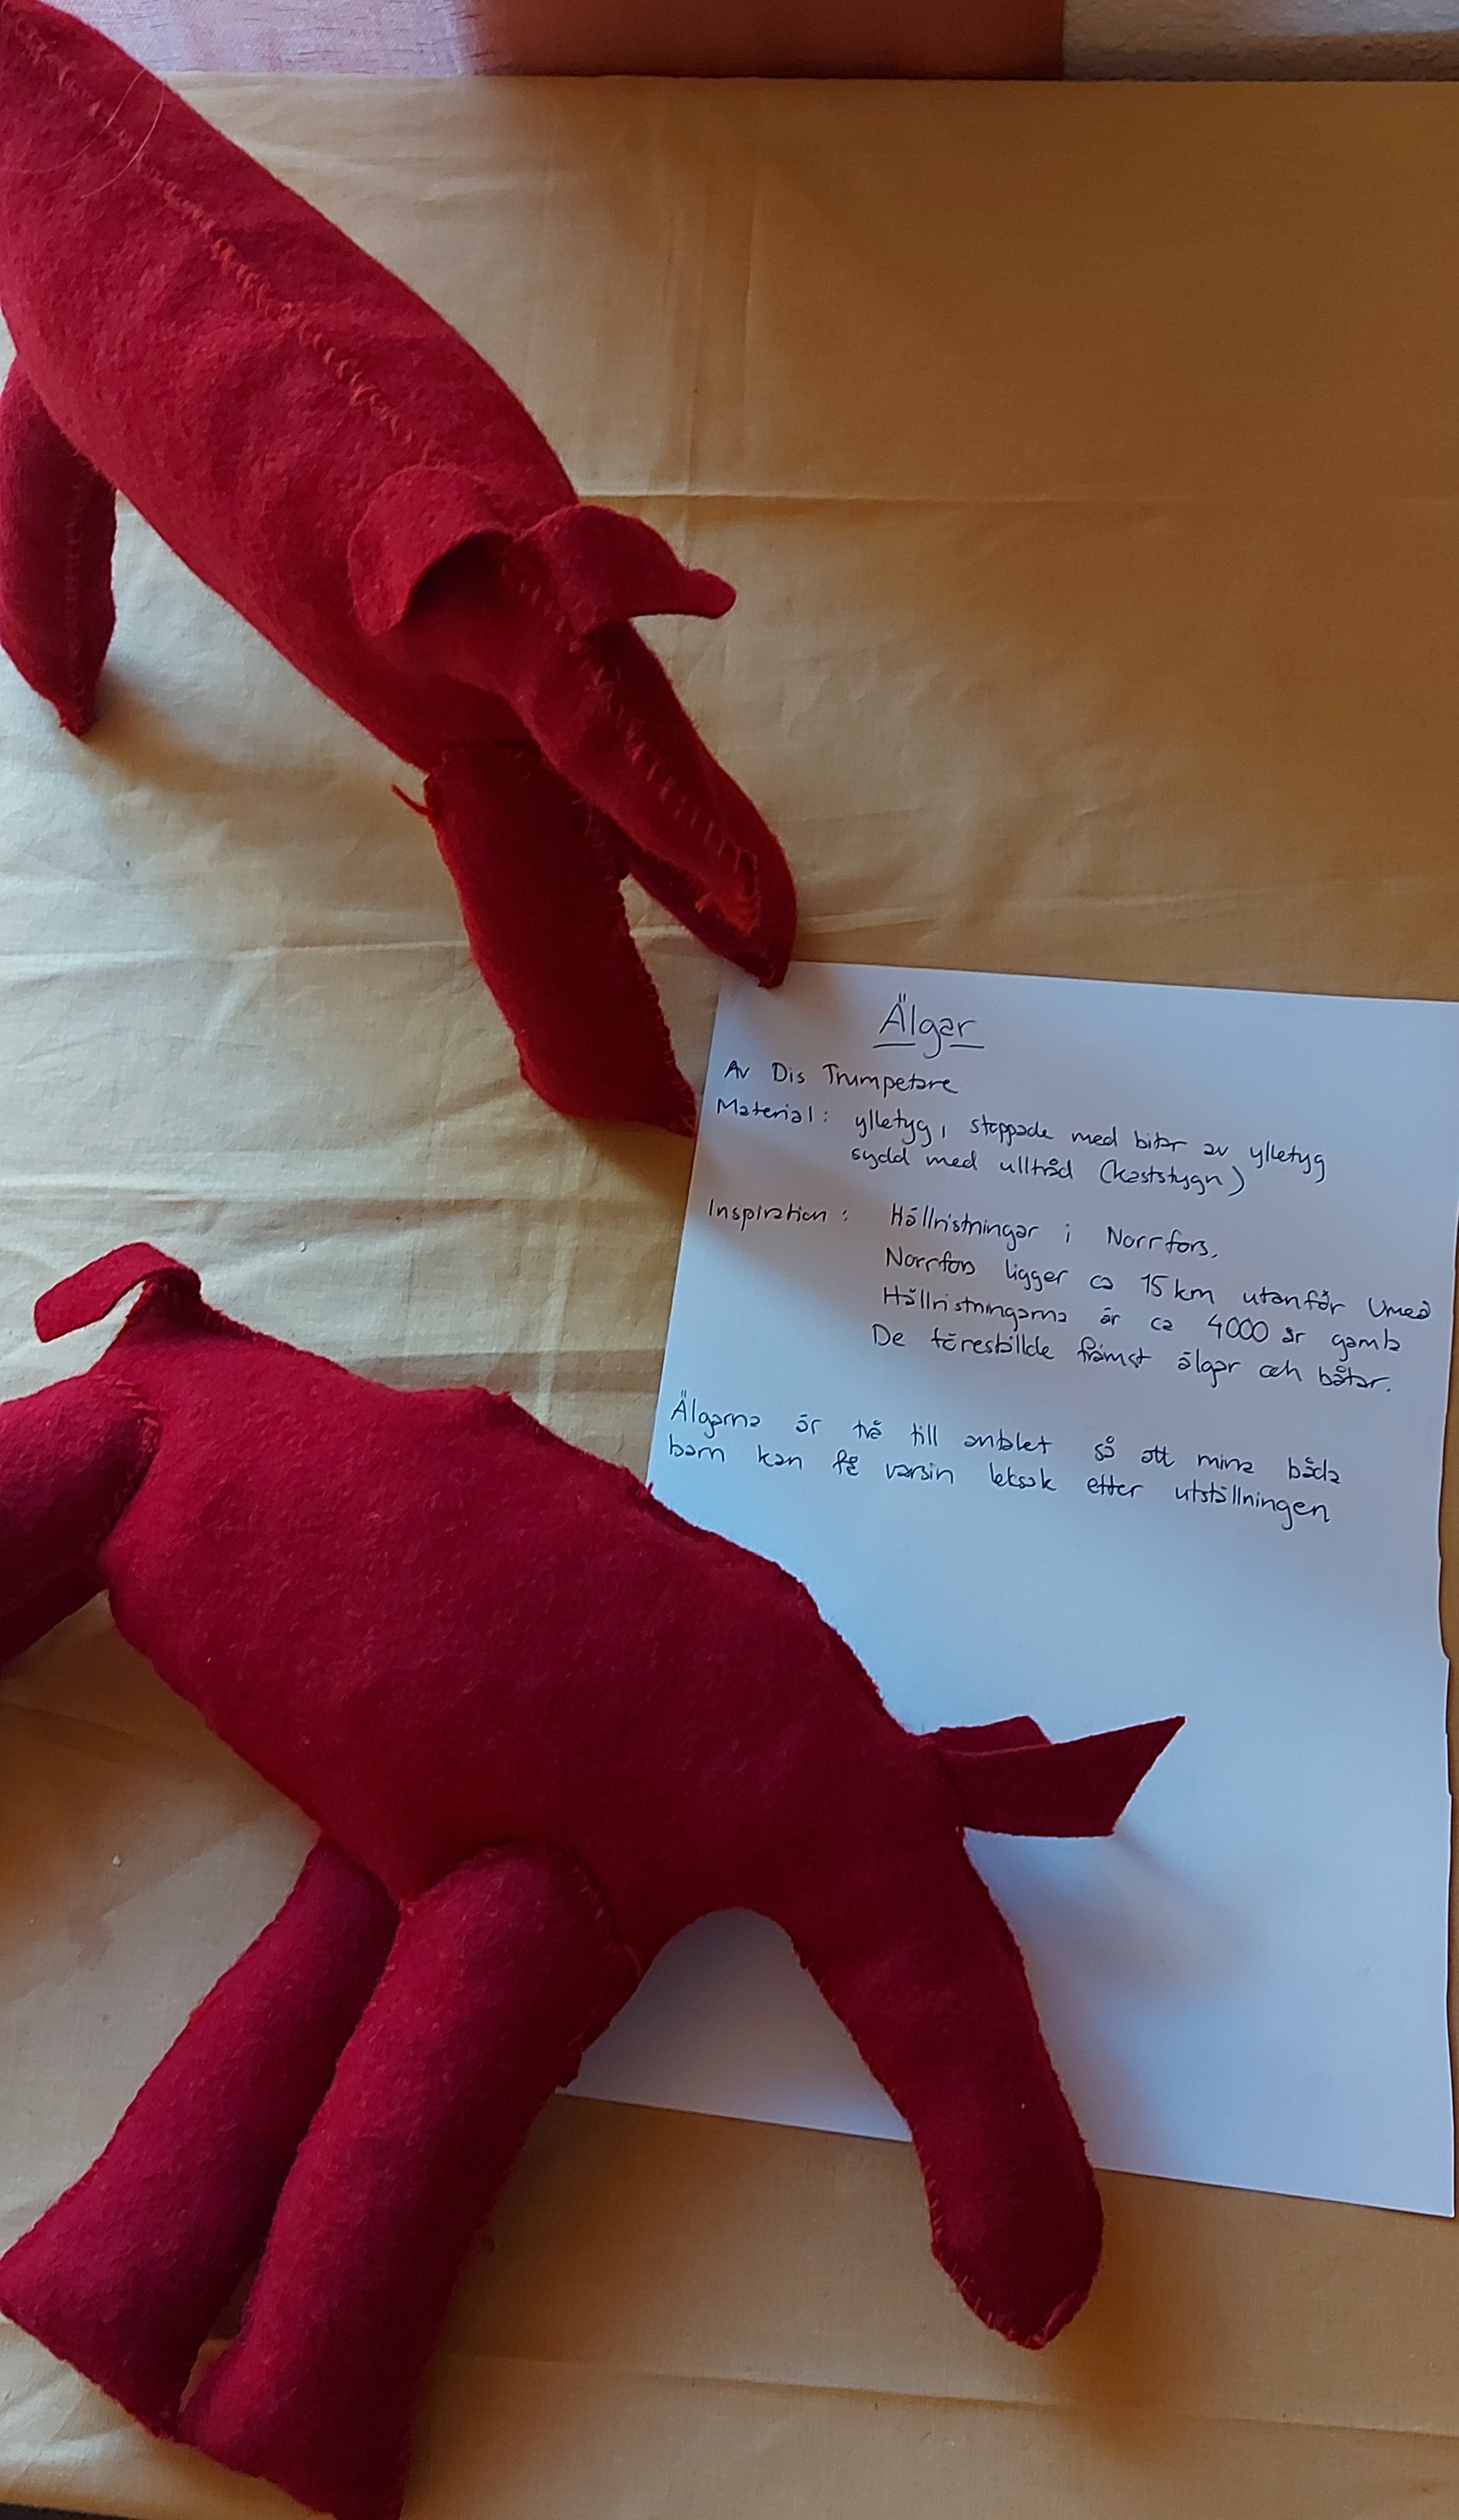 Älgar
Av Dis Trumpetare
Material: ylletyg, stoppade med bitar av ylletyg
sydd med ulltråd (kaststygn)
Inspiration: Hällristningar i Norrfors.
Norrfors ligger ca 15 km utanför Umeå
Hällristningarna är ca 4000 år gamla
De föreställde främst älgar och båtar.
Älgarna är två till antalet så att mina båda
barn kan få varsin leksak efter utställningen